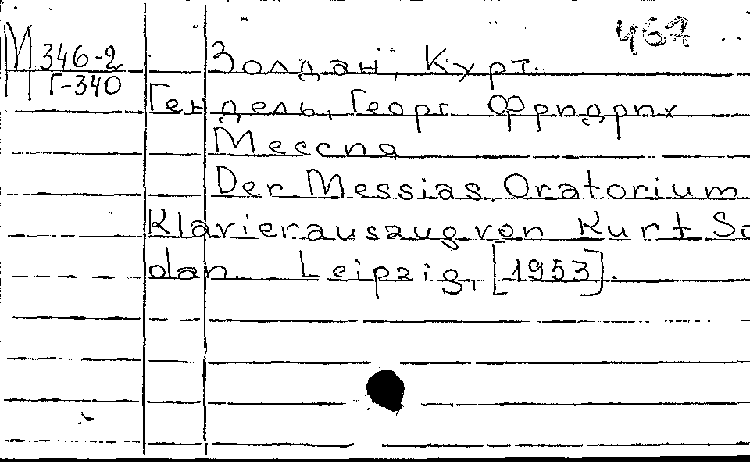 467
М 346-2
Г-340
Золдан, Курт.
Гендель, Георг Фридрих
Мессия
Der Messias. Oratorium
Klavierauszug von Kurt So
dan Leipzig, [1953].